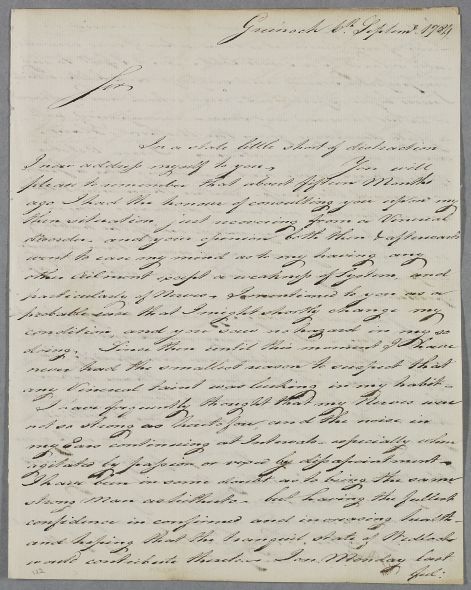 Greenock 6th. Septemr. 1784
Sir,
In a state little short of distraction
I now address myself to you, You will
please to remember that about fifteen Months
ago I had the honour of consulting you upon my
then situation, just recovering from a Venereal
disorder, and your opinion both then & afterwards
went to ease my mind as to my having any
other ailment except a weakness of System, and
particularly of Nerves. I mentioned to you as a
probable case that I might shortly change my
condition, and you saw no hazard in my so
doing. Since then until this moment I have
never had the smallest reason to suspect that
any Venereal taint was lurking in my habit.
I have frequently thought that my Nerves were
not so strong as heretofore, and the noise in
my Ears continuing at Intervals especially when
agitated by passion or vexed by disappointment
I have been in some doubt as to being the same
strong Man as hitherto. but having the fullest
confidence in confirmed and increasing health
and hoping that the tranquil state of Wedlock
would contribute thereto. I on Monday last
122